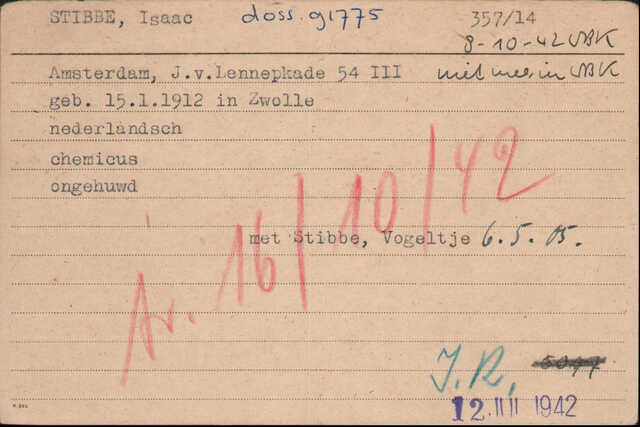 STIBBE, Isaac doss. g1775 357/14
8-10-42 WBK
Amsterdam, J.v.Lennepkade 54 III niet meer in WBK
geb. 15.1.1912 in Zwolle
nederlandsch
chemicus
ongehuwd
Av. 16/10/42
met Stibbe, Vogeltje 6.5.05.
J.R.
12 1942